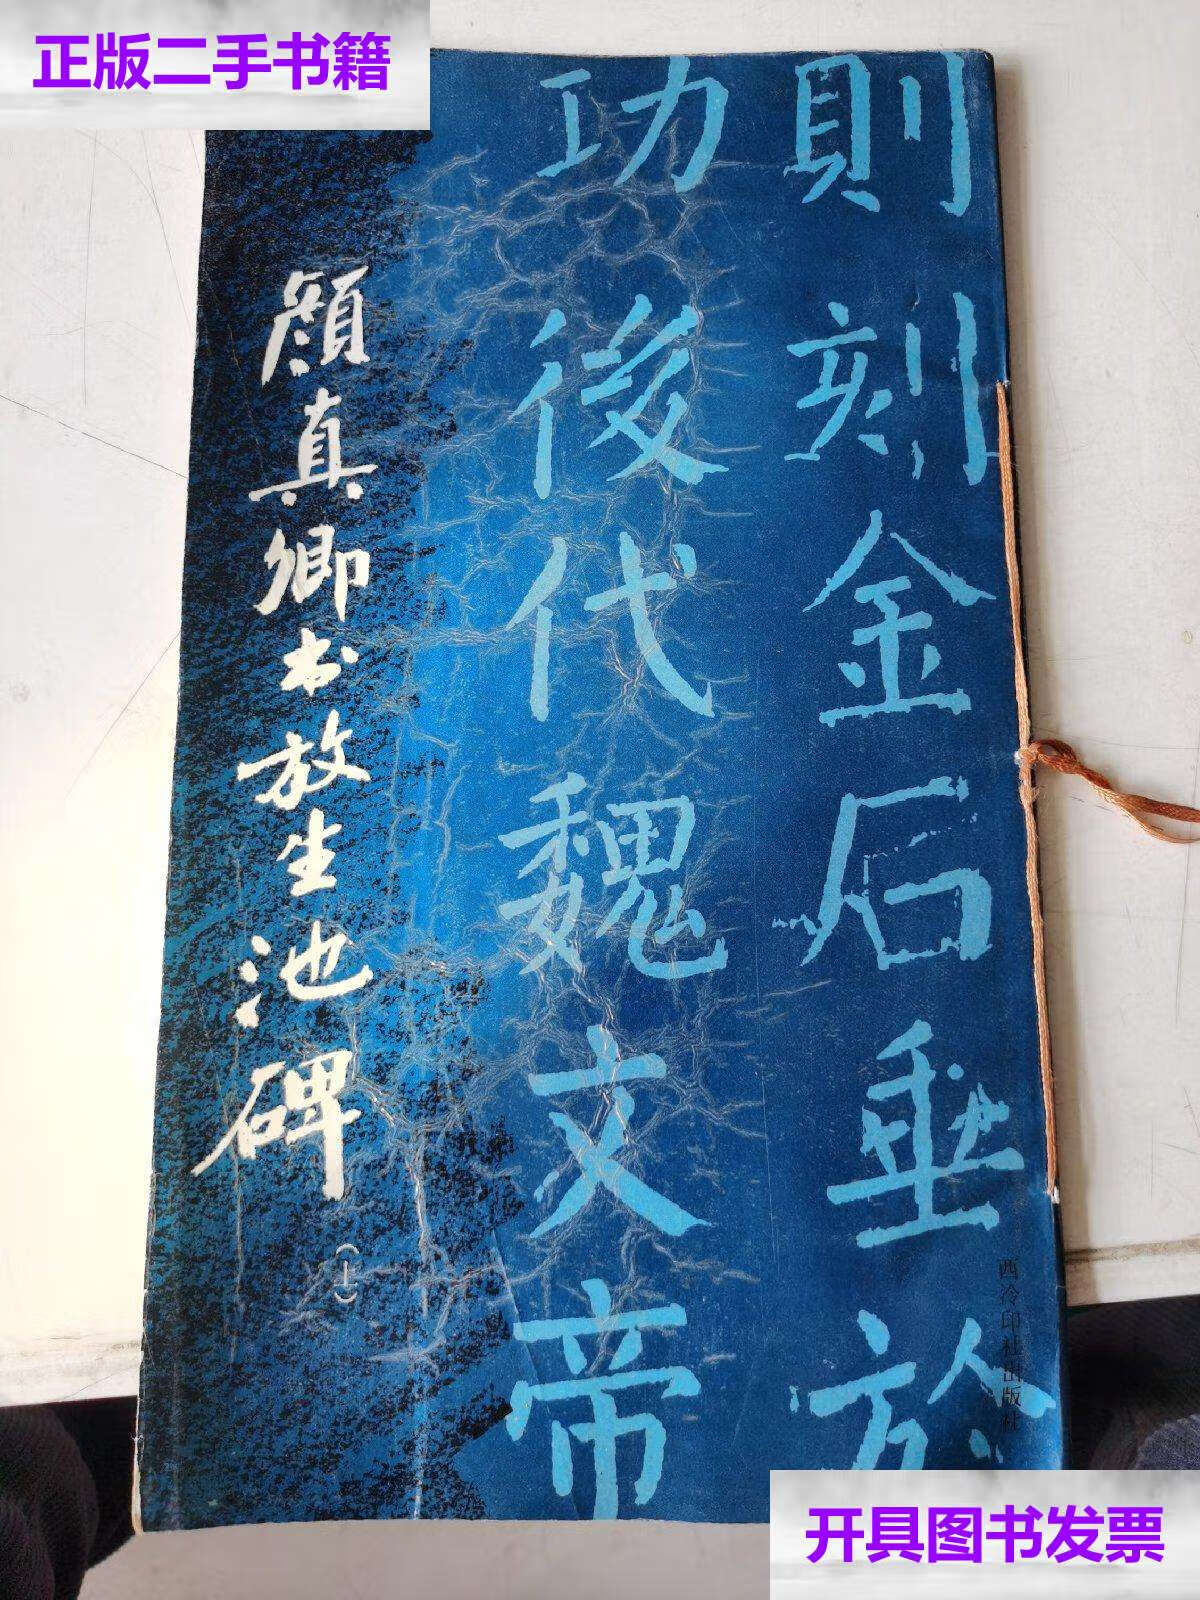 正版二手书籍
則刻金石垂於
功後代魏文帝
顔真卿书放生池碑
（上）
西泠印社出版社
开具图书发票